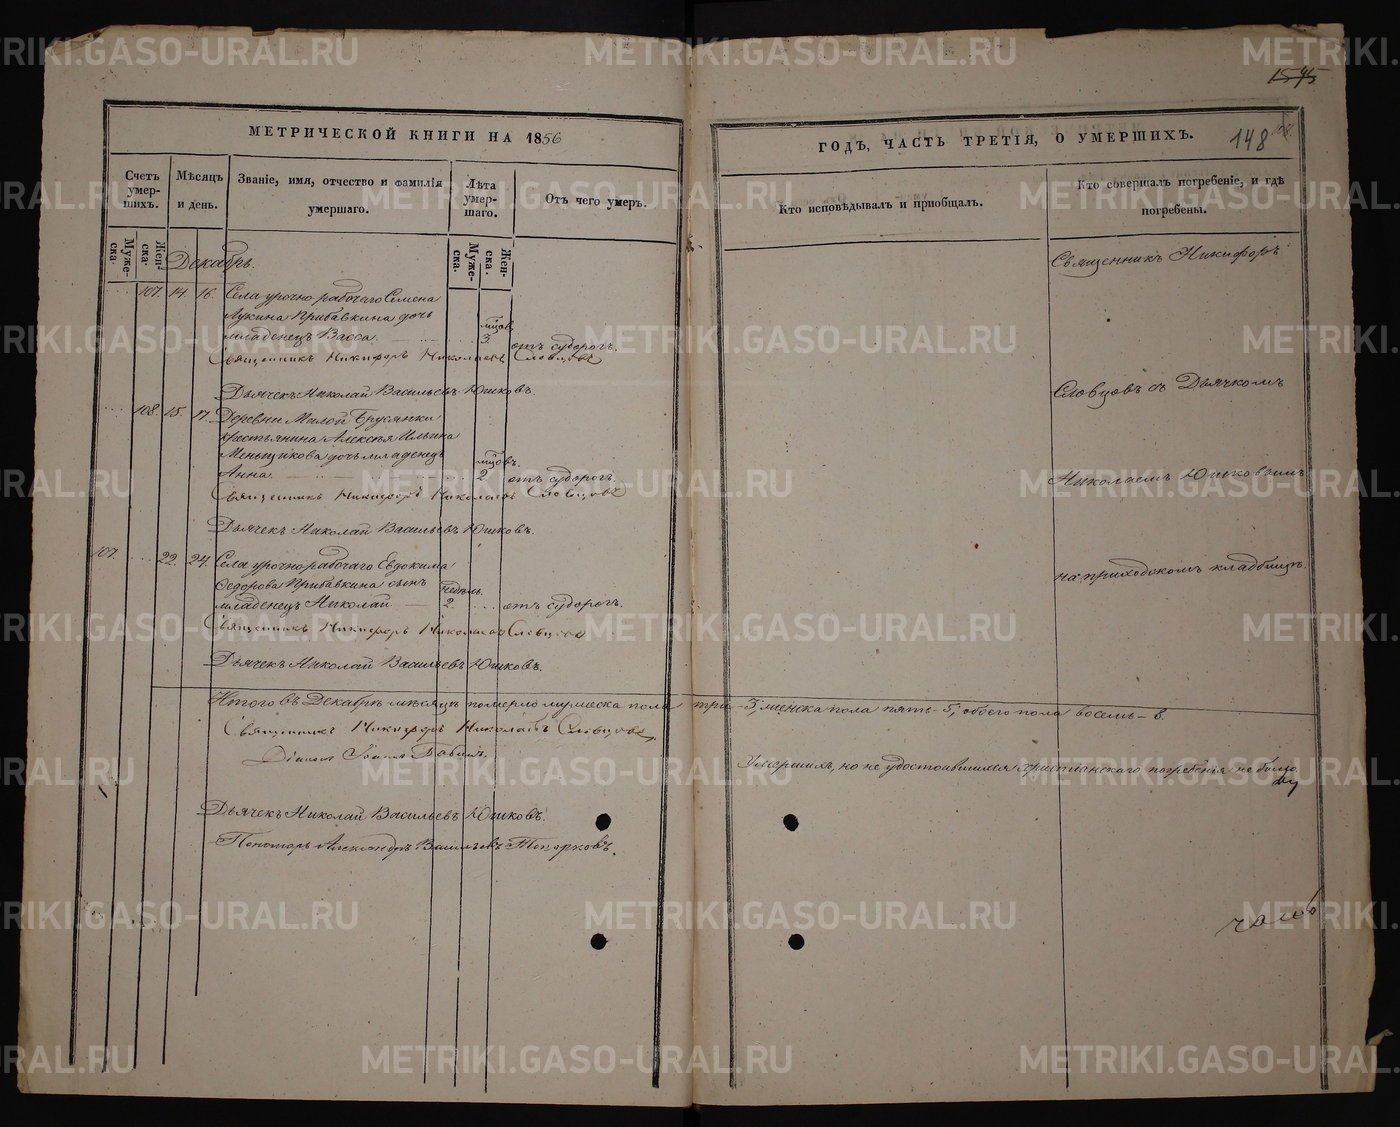 МЕТРИЧЕСКОЙ КНИГИ НА 1856
Счетъ умерших.
Мѣсяцъ и день.
Званіе, имя, отчество и фамилія умершаго.
Лѣта умершаго.
Отъ чего умеръ.
Мужеска.
Женска.
Мужеска.
Женска.
Декабрь.
107. 14. 16. Села урочно рабочаго Семена
Лукина Прибавкина дочь
мцов.
младенецъ Васса. 3. отъ судорог.
Священникъ Никифоръ Николаевъ Словцовъ
Дьячекъ Николай Васильевъ Юшковъ.
108. 15. 17. Деревни Малой Брусянки
крестьянина Алексѣя Ильина
Меньщикова дочь младенец
мцов.
Анна. 2 отъ судорог.
Священникъ Никифоръ Николаевъ Словцовъ
Дьячекъ Николай Васильевъ Юшковъ.
107. 22. 24. Села урочнорабочаго Евдокима
Федорова Прибавкина сынъ
недѣль.
младенецъ Николай 2. отъ судорогъ.
Священникъ Никифоръ Николаевъ Словцовъ
Дьячекъ Николай Васильевъ Юшковъ.
Итого въ Декабрѣ мѣсяцѣ померло мужеска пола три - 3; женска пола пять - 5; обоего пола восемь - 8.
Священникъ Никифоръ Николаевъ Словцовъ.
Дьячекъ Николай Васильевъ Юшковъ.
Пономарь Александръ Васильевъ Топорковъ.
1545
148
ГОДЪ, ЧАСТЬ ТРЕТІЯ, О УМЕРШИХЪ.
Кто исповѣдывалъ и пріобщалъ.
Кто совершалъ погребеніе, и гдѣ погребены.
Священникъ Никифоръ
Словцовъ съ Дьячкомъ
Николаемъ Юшковымъ
на приходскомъ кладбищѣ.
Умершихъ, но не удостоившихся христіанскаго погребенія не было.
METRIKI.GASO-URAL.RU